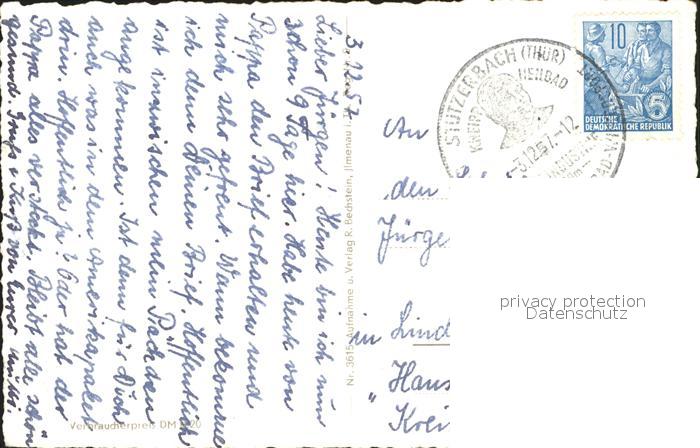 3.12.57
Lieber Jürgen! Heute bin ich nun
schon 9 Tage hier. Habe heute von
Pappa den Brief erhalten und
mich sehr gefreut. Wann bekomme
ich denn Deinen Brief. Hoffentlich
ist inzwischen mein Päckchen
angekommen. Ist denn für Dich
auch was in dem Amerikapaket
drin. Hoffentlich ja? Oder hat der
Pappa alles versteckt. Bleibt alle schön
gesund. Gruß u. Kuß von Eurer Mutti
Verbraucherpreis DM 0,20
Nr. 3615 Aufnahme u. Verlag R. Bechstein, Ilmenau
STÜTZERBACH (THÜR)
KNEIPP
HEILBAD
-3.12.57.-12
10
5
DEUTSCHE
DEMOKRATISCHE REPUBLIK
An
den
Jürge
in Lind
"Haus
Krei
privacy protection
Datenschutz